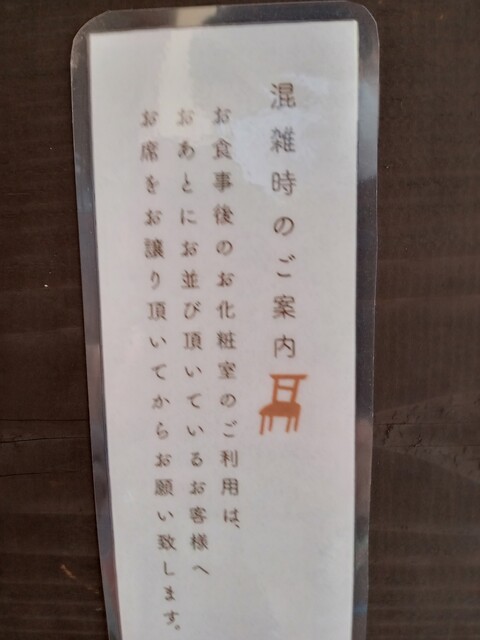 混雑時のご案内
お食事後のお化粧室のご利用は、
おあとにお並び頂いているお客様へ
お席をお譲り頂いてからお願い致します。